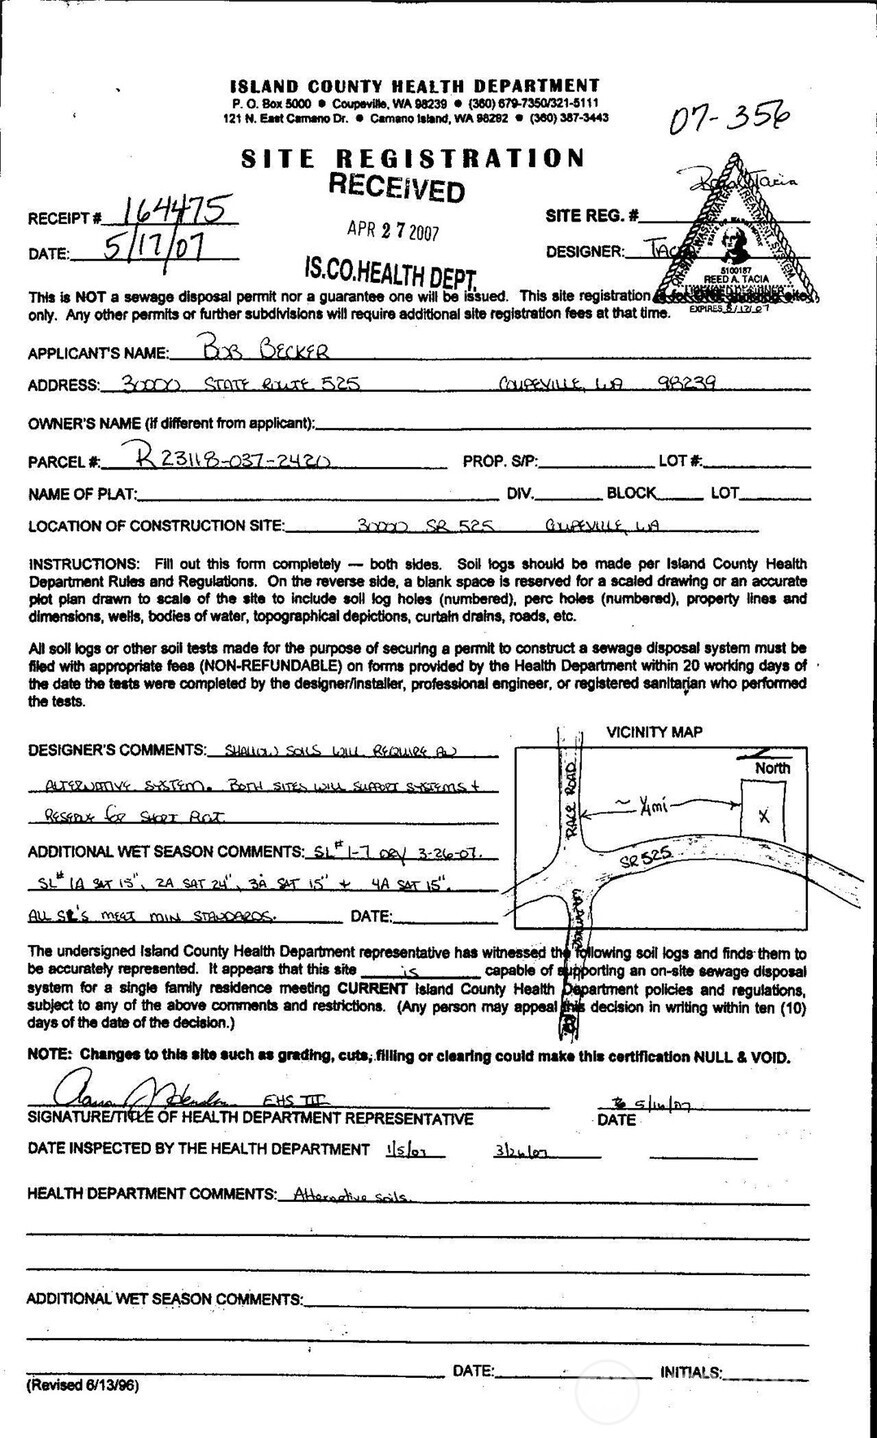 ISLAND COUNTY HEALTH DEPARTMENT
P. O. Box 5000 ● Coupeville, WA 98239 ● (360) 679-7350/321-5111
121 N. East Camano Dr. ● Camano Island, WA 98292 ● (360) 387-3443
07-356
SITE REGISTRATION
RECEIVED
APR 27 2007
IS.CO.HEALTH DEPT.
RECEIPT # 164475
DATE: 5/17/07
SITE REG. #
DESIGNER: TAC
5100187
REED A. TACIA
EXPIRES 5/12/07
This is NOT a sewage disposal permit nor a guarantee one will be issued. This site registration is for
only. Any other permits or further subdivisions will require additional site registration fees at that time.
APPLICANT'S NAME: BOB BECKER
ADDRESS: 30000 STATE ROUTE 525 COUPEVILLE, WA 98239
OWNER'S NAME (if different from applicant):
PARCEL #: R23118-037-2420 PROP. S/P: LOT #:
NAME OF PLAT: DIV. BLOCK LOT
LOCATION OF CONSTRUCTION SITE: 30000 SR 525 COUPEVILLE, WA
INSTRUCTIONS: Fill out this form completely — both sides. Soil logs should be made per Island County Health
Department Rules and Regulations. On the reverse side, a blank space is reserved for a scaled drawing or an accurate
plot plan drawn to scale of the site to include soil log holes (numbered), perc holes (numbered), property lines and
dimensions, wells, bodies of water, topographical depictions, curtain drains, roads, etc.
All soil logs or other soil tests made for the purpose of securing a permit to construct a sewage disposal system must be
filed with appropriate fees (NON-REFUNDABLE) on forms provided by the Health Department within 20 working days of
the date the tests were completed by the designer/installer, professional engineer, or registered sanitarian who performed
the tests.
VICINITY MAP
North
RACE ROAD
~ 1/4 mi
X
SR 525
DESIGNER'S COMMENTS: SHALLOW SOILS WILL REQUIRE AN
ALTERNATIVE SYSTEM. BOTH SITES WILL SUPPORT SYSTEMS +
RESERVE for SHORT PLAT
ADDITIONAL WET SEASON COMMENTS: SL# 1-7 DRY 3-26-07.
SL# 1A SAT 15", 2A SAT 24", 3A SAT 15" + 4A SAT 15".
ALL SL'S MEET MIN STANDARDS. DATE:
The undersigned Island County Health Department representative has witnessed the following soil logs and finds them to
be accurately represented. It appears that this site is capable of supporting an on-site sewage disposal
system for a single family residence meeting CURRENT Island County Health Department policies and regulations,
subject to any of the above comments and restrictions. (Any person may appeal this decision in writing within ten (10)
days of the date of the decision.)
NOTE: Changes to this site such as grading, cuts, filling or clearing could make this certification NULL & VOID.
EHS III 5/16/07
SIGNATURE/TITLE OF HEALTH DEPARTMENT REPRESENTATIVE DATE
DATE INSPECTED BY THE HEALTH DEPARTMENT 1/5/07 3/26/07
HEALTH DEPARTMENT COMMENTS: Alternative soils.
ADDITIONAL WET SEASON COMMENTS:
DATE: INITIALS:
(Revised 6/13/96)